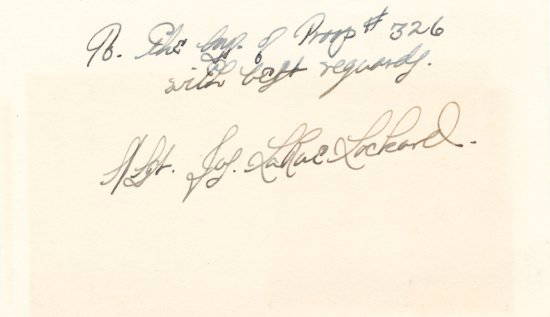 To. The boys of Troop # 326
with best reguards.
S/Sgt. Jos. LaRue Lockard.